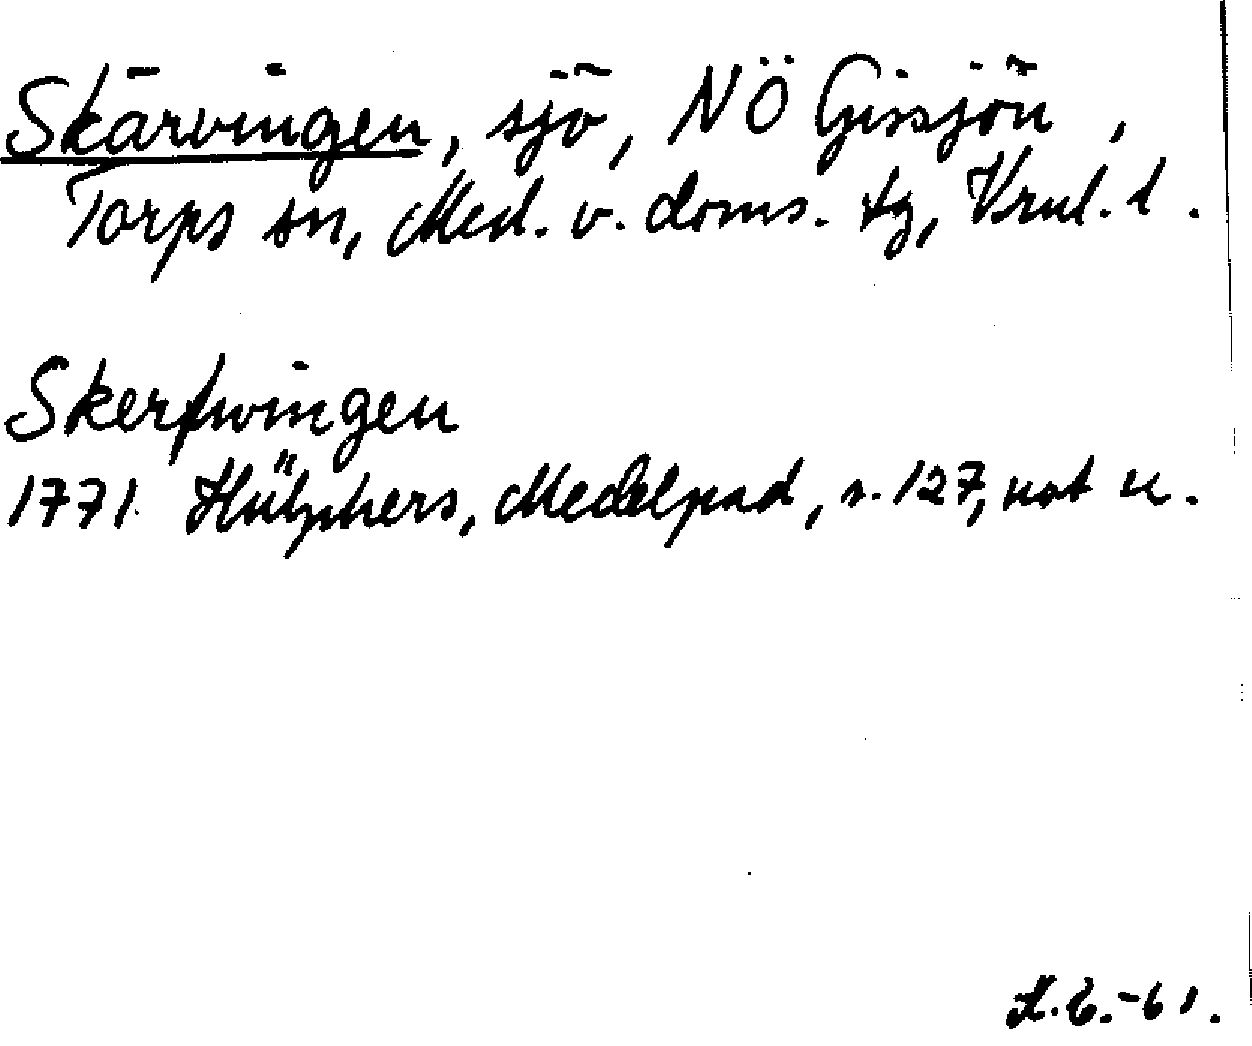 Skärvingen, sjö, NÖ Gissjön,
Torps sn, Med. v. doms. tg, Vrnl. l.
Skerfwingen
1771 Hülphers, Medelpad, s. 127, not u.
-61.